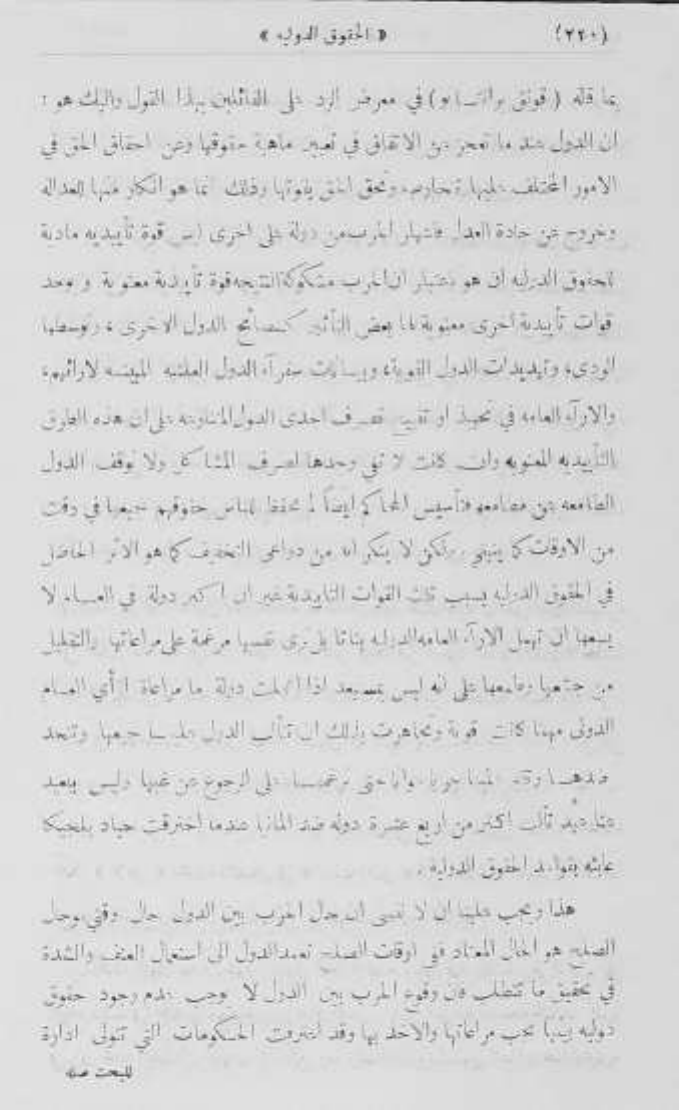 (٢٢٠) « الحقوق الدوليه »
بما قاله ( فونق ) في معرض الرد على القائلين بهذا القول واليك هو :
ان الدول عند ما تعجز عن الاتفاق في تعيين ماهية حقوقها وعن احقاق الحق في
الامور المختلف عليها تتحارب ويحق الحق بقوتها وذلك انما هو انكار منها للعداله
وخروج عن جادة العدل فاشهار الحرب من دولة على اخرى ليس قوة تأييديه مادية
للحقوق الدوليه ان هو باعتبار ان الحرب مشكوكة النتيجه قوة تأييدية معنوية و يوجد
قوات تأييدية اخرى معنوية لها بعض التأثير كنصائح الدول الاخرى ، وتوسطها
الودي، وتهديدات الدول القوية، وبيانات سفرآء الدول العلنيه المبينه لارائهم،
والارآء العامه في تحبيذ او تقبيح تصرف احدى الدول على ان هذه الطرق
التأييديه المعنويه وان كانت لا تفي وحدها لصرف المشاكل ولا توقف الدول
الطامعه عن مطامعه فتأسيس المحاكم ايضاً لم يحفظ للناس حقوقهم جميعها في وقت
من الاوقات كما ينبغي ولكن لا ينكر انه من دواعي التخفيف كما هو الاثر الحاصل
في الحقوق الدوليه بسبب تلك القوات التاييدية غير ان اكبر دولة في العالم لا
يسعها ان تهمل الارآء العامه الدوليه بتاتا بل ترى نفسها مرغمة على مراعاتها والتقليل
من جشعها وطمعها على انه ليس بمستبعد اذا اهملت دولة ما مراعاة الرأي العام
الدولي مهما كانت قوية وتجاهرت بذلك ان تتألب الدول عليها جميعها وتتحد
ضدها حتى ترغمها على الرجوع عن غيها وليس ببعيد
تألب اكثر من اربع عشرة دوله ضد المانيا عندما اخترقت حياد بلجيكا
عابثه بقواعد الحقوق الدولية .
هذا ويجب علينا ان لا ننسى ان حال الحرب بين الدول حال وقتي وحال
الصلح هو الحال المعتاد ففي اوقات الصلح تعمد الدول الى استعمال العنف والشدة
في تحقيق ما تتطلب فان وقوع الحرب بين الدول لا يوجب عدم وجود حقوق
دوليه بينها تجب مراعاتها والاخذ بها وقد اعترفت الحكومات التي تتولى ادارة
للبحث صله